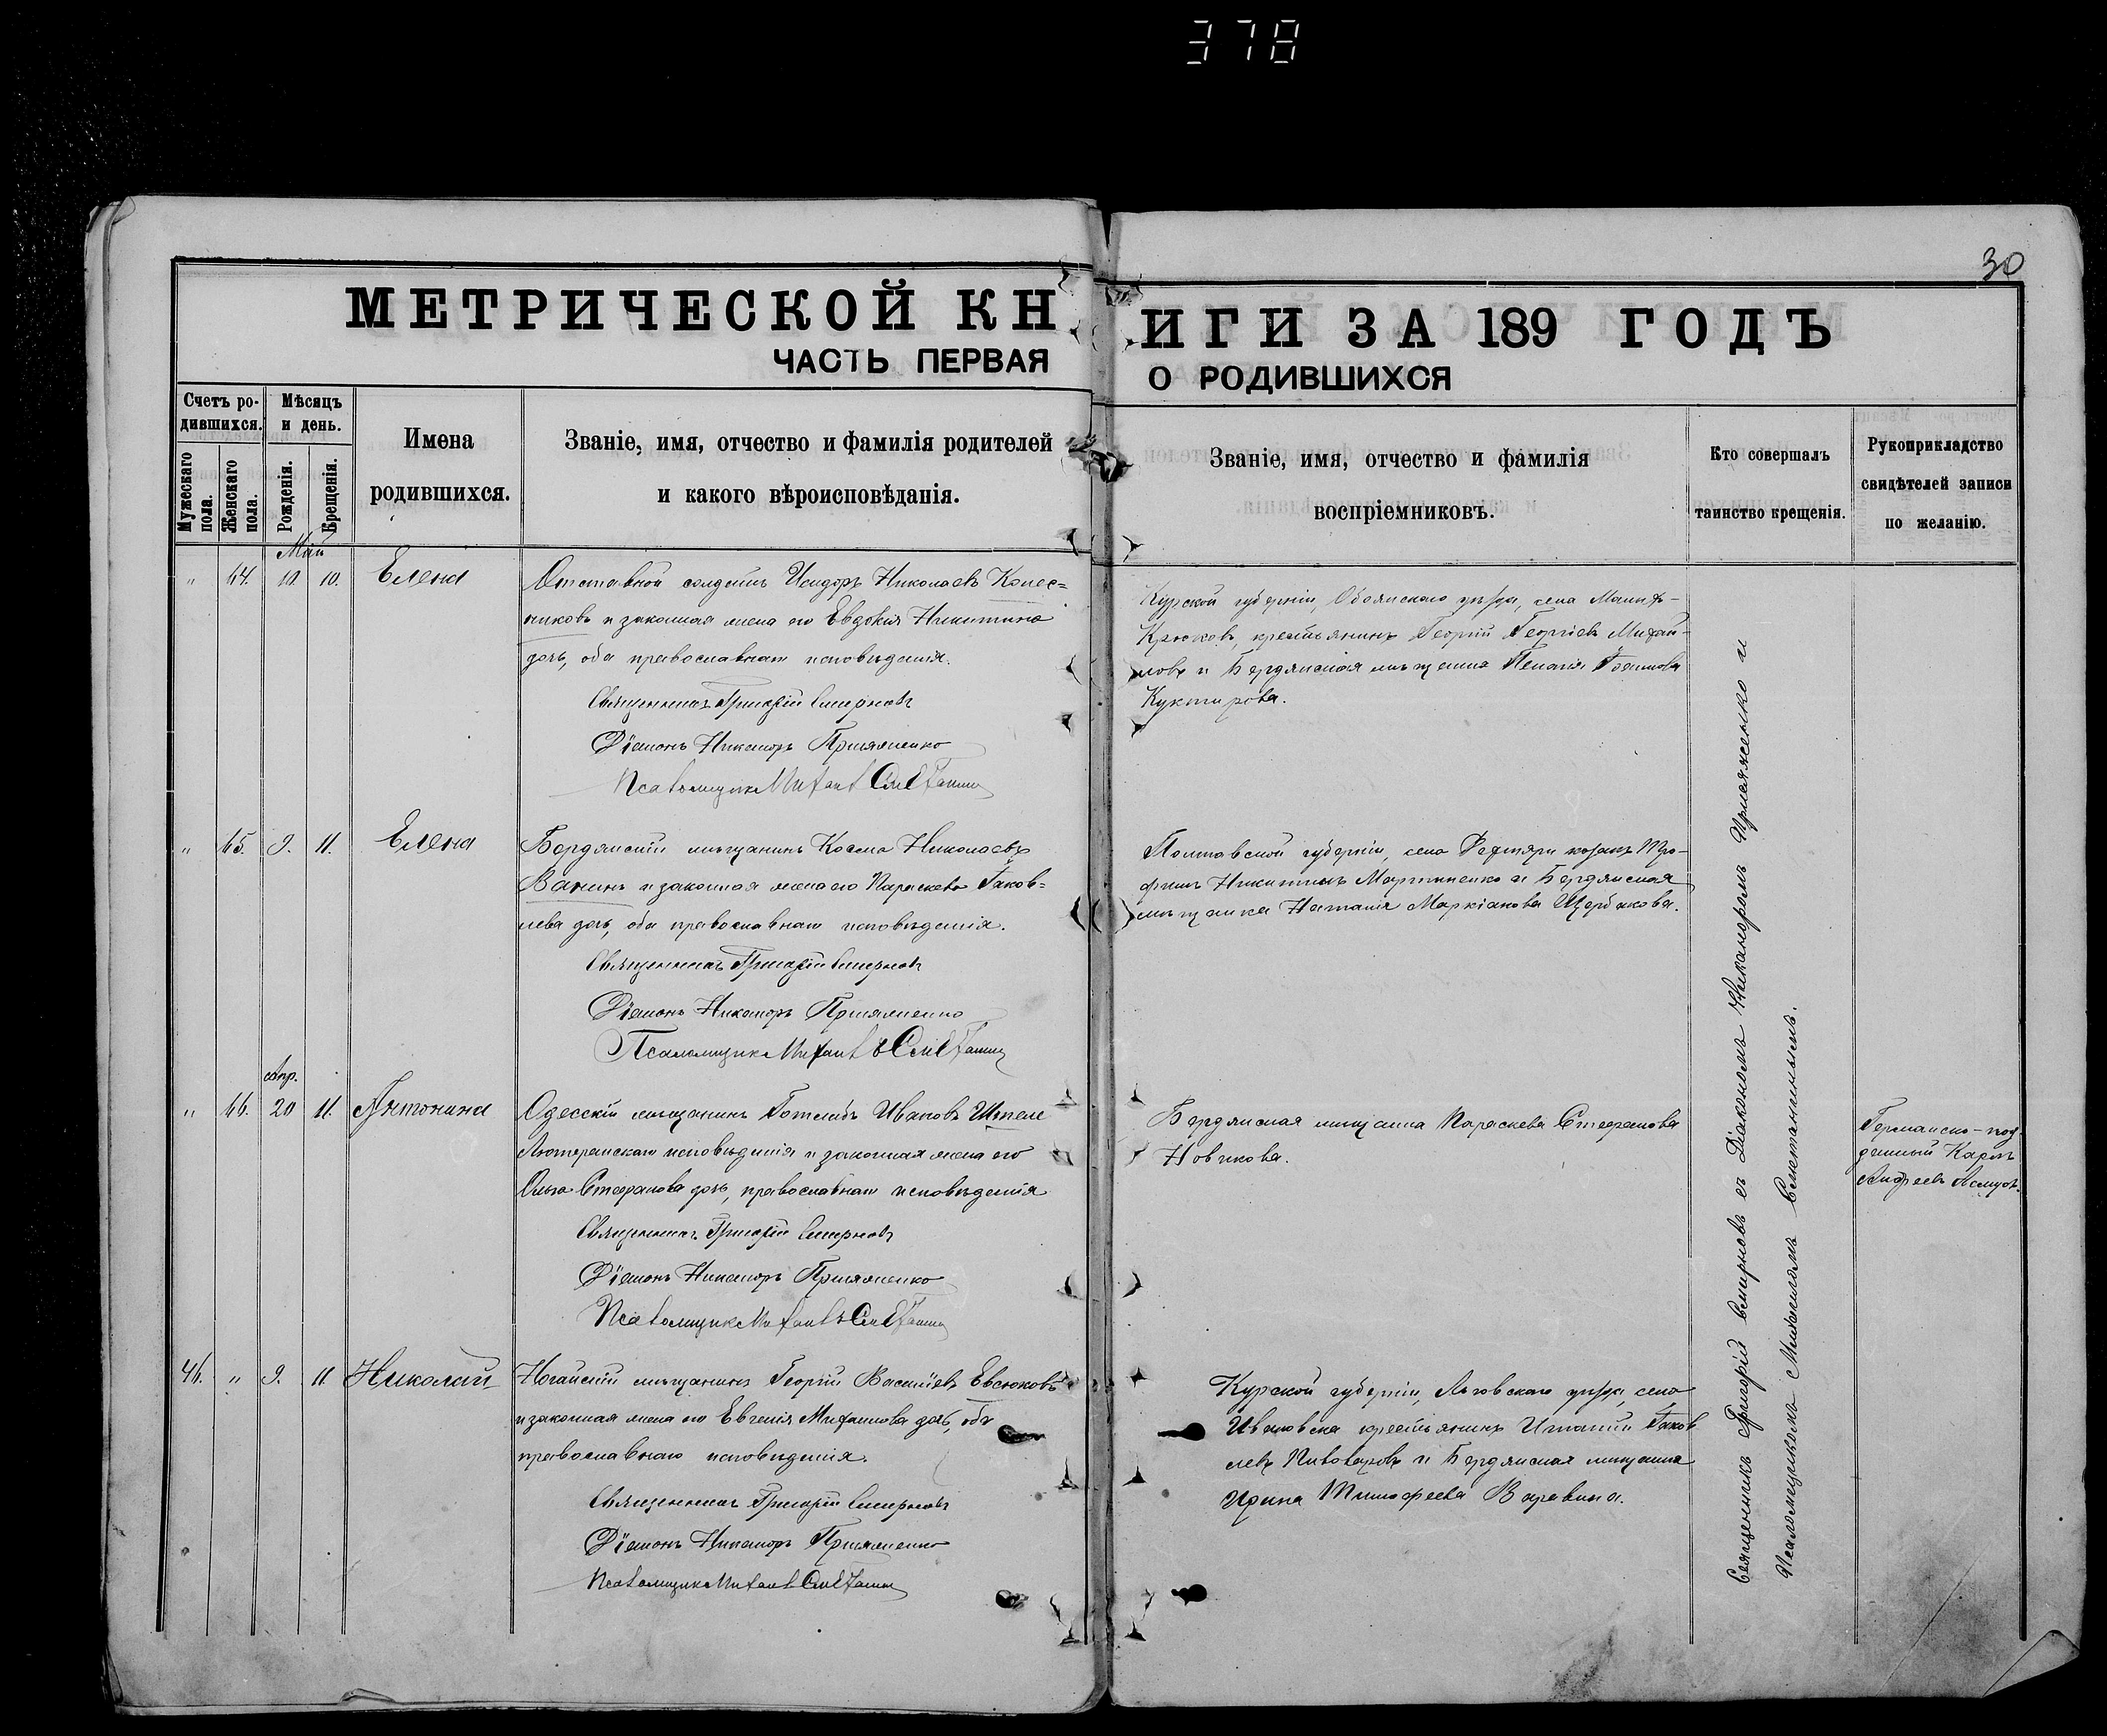 378
30
МЕТРИЧЕСКОЙ КНИГИ ЗА 189 ГОДЪ
ЧАСТЬ ПЕРВАЯ О РОДИВШИХСЯ
Счетъ ро-
дившихся.
Мужескаго
пола.
Женскаго
пола.
Мѣсяцъ
и день.
Рожденія.
Крещенія.
Имена
родившихся.
Званіе, имя, отчество и фамилія родителей
и какого вѣроисповѣданія.
Званіе, имя, отчество и фамилія
воспріемниковъ.
Кто совершалъ
таинство крещенія.
Рукоприкладство
свидѣтелей записи
по желанію.
Май
" 44. 10. 10. Елена
Отставной солдатъ Исидоръ Николаевъ Колес=
никовъ и законная жена его Евдокія Никитина
дочь, оба православнаго исповѣданія.
Священникъ Григорій Смирновъ
Діаконъ Никаноръ
Псаломщикъ Михаилъ
Курской губерніи, Обоянскаго уѣзда, села
Крюковъ, крестьянинъ Георгій Георгіевъ Михай-
ловъ и Бердянская мѣщанка Пелагія
" 45. 9. 11. Елена
Бердянскій мѣщанинъ Косма Николаевъ
Ванинъ и законная жена его Параскева Іаков=
лева дочь, оба православнаго исповѣданія.
Священникъ Григорій Смирновъ
Діаконъ Никаноръ
Псаломщикъ Михаилъ
Полтавской губерніи, села козакъ Тро-
фимъ Никитинъ Мартиненко и Бердянская
мѣщанка Наталія Маркіанова Щербакова.
апр.
" 46. 20 11. Антонина
Одесскій мѣщанинъ Готлибъ Ивановъ
Лютеранскаго исповѣданія и законная жена его
Ольга Стефанова дочь, православнаго исповѣданія
Священникъ Григорій Смирновъ
Діаконъ Никаноръ
Псаломщикъ Михаилъ
Бердянская мѣщанка Параскева Стефанова
Новикова.
Германско-под-
данный Карлъ
Андреевъ
46. " 9. 11. Николай
Ногайскій мѣщанинъ Георгій Васильевъ Евсюковъ
и законная жена его Евгенія Михаилова дочь, оба
православнаго исповѣданія.
Священникъ Григорій Смирновъ
Діаконъ Никаноръ
Псаломщикъ Михаилъ
Курской губерніи, Льговскаго уѣзда, села
Ивановска крестьянинъ Игнатій Іаков
левъ Пивоваровъ и Бердянская мѣщанка
Ирина Тимофеева Варавина.
Священникъ Григорій Смирновъ съ Діакономъ Никаноромъ и
Псаломщикомъ Михаиломъ